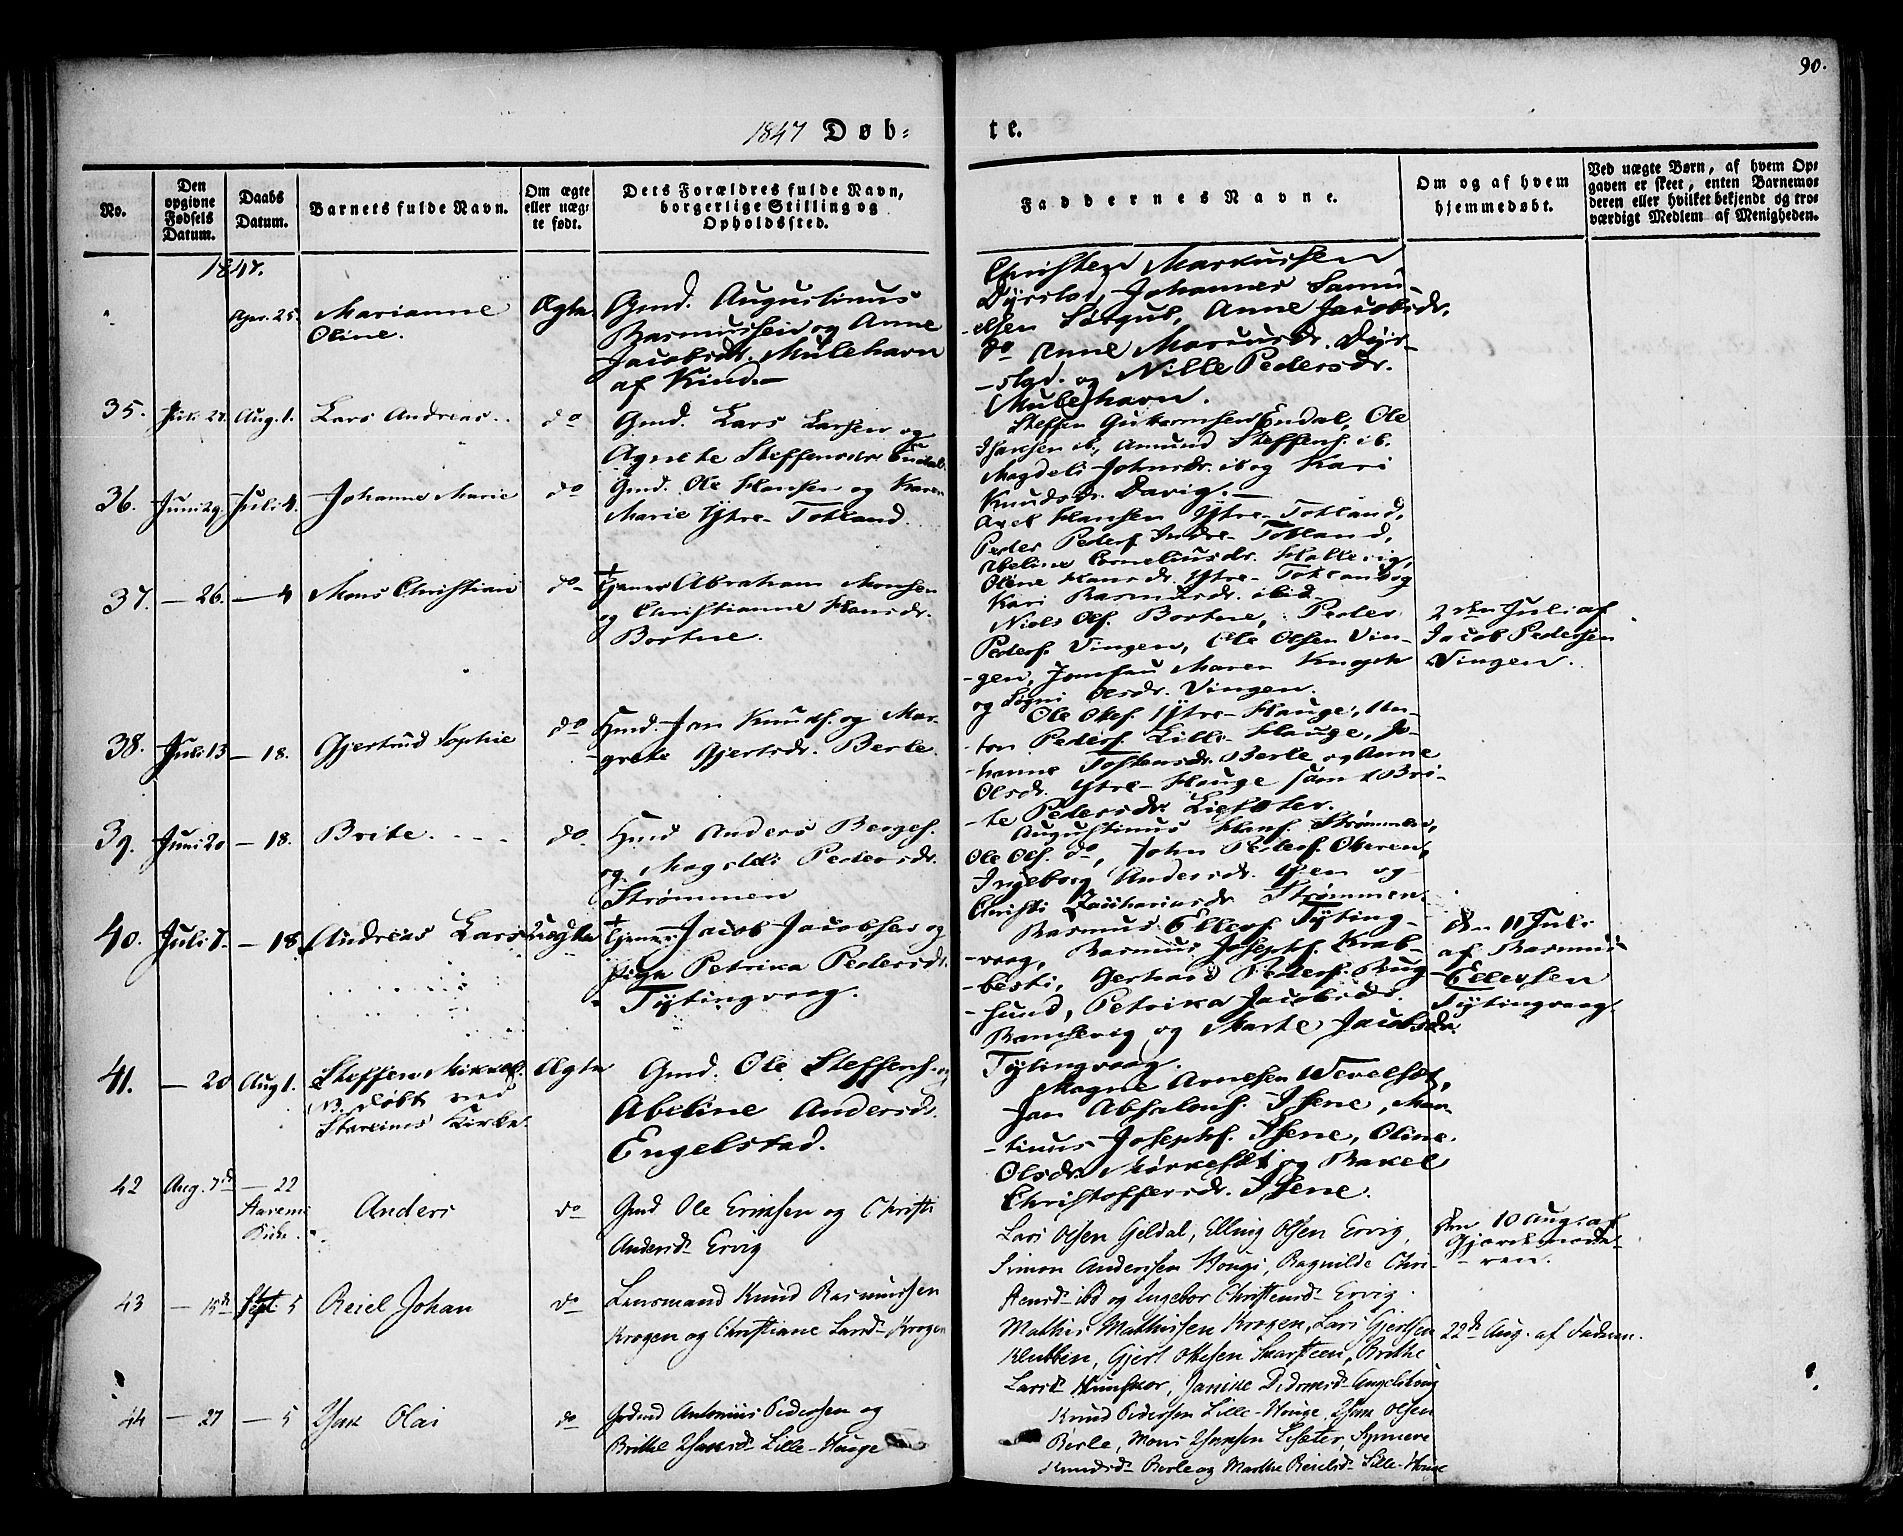 90.
1847 Døb-
te.
No.
Den
opgivne
Fødsels
Datum.
Daabs
Datum.
Barnets fulde Navn.
Om ægte
eller uæg-
te født.
Dets Forældres fulde Navn,
borgerlige Stilling og
Opholdssted.
Faddernes Navne.
Om og af hvem
hjemmedøbt.
Ved uægte Børn, af hvem Op-
gaven er skeet, enten Barnemo-
deren eller hvilket bekjendt og tro-
værdigt Medlem af Menigheden.
1847.
Apr. 25.
Marianne
Oline.
Ægte
Gmd. Augustinus
Rasmussen og Anne
Jacobsdr. Mulehavn
af Kind.
Christen Markussen
Dyrstad, Johannes Samu-
-elsen Sørgul, Anne Jacobsdr.
do Anne Marcusdr. Dyr-
-stad. og Nille Pedersdr.
Mulehavn.
35.
Aug. 1.
Lars Andreas.
do
Gmd. Lars Larsen og
Agnete Steffensdr. Endal.
Steffen Endal, Ole
Hansen ib., Amund Steffens. ib.
Magdeli Johnsdr. ib og Kari
Knudsdr. Davig.
36.
Juni 29.
Juli 4.
Johanne Marie
do
Gmd. Ole Hansen og Karen
Marie Ytre-Totland.
Axel Hansen Ytre-Totland,
Peder Peders. Indre-Totland,
Abeline Corneliusdr. Hallevig,
Oline Hansdr. Ytre-Totland og
Kari Rasmusdr. ibid.
37.
— 26.
— 4
Mons Christian
do
Tjener Abraham Monsen
og Christianne Hansdr.
Bortne.
Niels Ols. Bortne, Peder
Peders. Vingen, Ole Olsen Vin-
-gen, Jomfru Maren
og Søgni Olsdr. Vingen.
2den Juli af
Jacob Pedersen
Vingen.
38.
Juli 13
— 18.
Gjertrud Sophie
do
Hmd. Jan Knuds. og Mar-
grete Gjertsdr. Berle.
Ole Okes. Ytre-Hauge, An-
-ton Peders. Lille-Hauge, Jo-
-hanne Tostensdr. Berle og Anne
Olsdr. Ytre-Hauge samt Bri-
-te Pedersdr.
39.
Juni 20
— 18.
Brite.
do
Hmd Anders Berges.
og Magdeli Pedersdr.
Strømmen
Augustinus Hans. Strømmen,
Ole Ols. do, John Peders. Oberen,
Ingeborg Andersdr. og
Christi Zachariasdr. Strømmen.
40.
Juli 7.
— 18.
Andreas Lars
Uægte
Tjener Jacob Jacobsen og
Pige Petrika Pedersdr.
Tytingvaag.
Rasmus Ellefs. Tyting-
-vaag, Rasmus Josephs. Krab-
-besti, Gerhard Peders. Rug-
-sund, Petrika Jacobsdr.
Ramsevig og Marte Jacobsdr.
Tytingvaag.
den 11 Juli
af Rasmus
Ellefsen
Tytingvaag.
41.
— 20
Aug 1.
Steffen Mikael.
NB. døbt ved
Staveines Kirke.
Ægte
Gmd. Ole Steffens. og
Abeline Andersdr.
Engelstad.
Magne Arnesen Wevelset,
Jan Absalons. Isene, Mar-
-tinus Josephs. Isene, Oline
Olsdr. Mørkeset og Rakel
Christoffersdr. Isene.
42
Aug. 7de
— 22
Anders
do
Gmd Ole Erinsen og Christi
Andersdr Ervig
Lars Olsen Geldal, Elling Olsen Ervig,
Simon Andersen Hougi, Ragnilde Chri-
stensdr ibd og Ingebor Christensdr Ervig.
den 10 Aug. af
Gjordemode-
-ren.
43
— 15de
Sept 5
Reiel Johan
do
Lensmand Knud Rasmussen
Krogen og Christiane Larsdr Krogen
Mathis Mathissen Krogen, Lars Gjertsen
Klubben, Gjert Okesen Skarsteen, Brithe
Larsdr Hunskor, Janike Didriksdr Angelskaug
22de Aug. af Faderen.
44
— 27
— 5
Isak Olai
do
Grdmd Antonius Pedersen og
Brithe Isaksdr Lille-Houge
Knud Pedersen Lille-Houge, Isak Olsen
Berle, Mons Isaksen Lisæter, Synneve
Knudsdr Berle og Marthe Reielsdr Lille-Houge